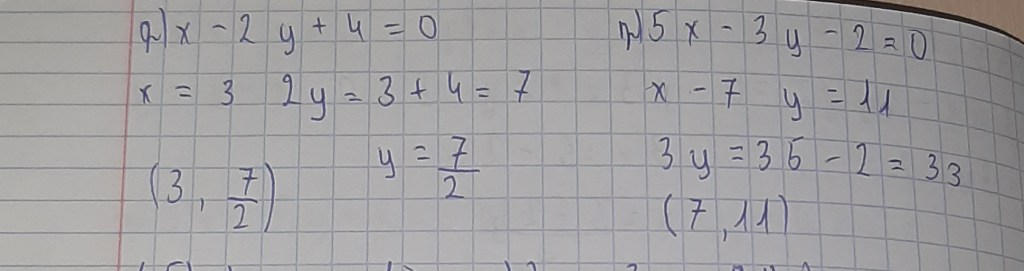 ք) x - 2y + 4 = 0
x = 3 2y = 3 + 4 = 7
y = 7/2
(3, 7/2)
ր) 5x - 3y - 2 = 0
x - 7 y = 11
3y = 35 - 2 = 33
(7, 11)